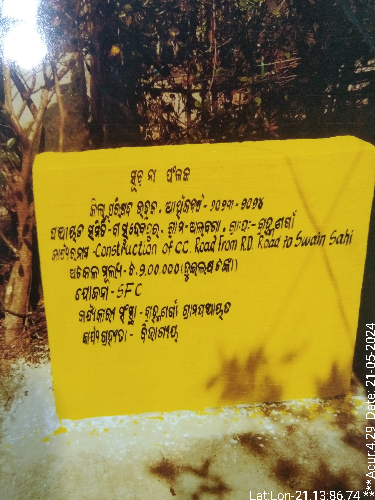 ସୂଚନା ଫଳକ
ଜିଲ୍ଲା ପରିଷଦ ଭଦ୍ରକ, ଆର୍ଥିକବର୍ଷ - ୨୦୨୩ - ୨୦୨୪
ପଞ୍ଚାୟତ ସମିତି - ବାସୁଦେବପୁର, ଗ୍ରାମ -
କାର୍ଯ୍ୟର ନାମ - Construction of CC. Road From R.D. Road to Swain Sahi
ଅଟକଳ ମୂଲ୍ୟ - ଟ. ୨,00,000 (ଦୁଇଲକ୍ଷ ଟଙ୍କା)
ଯୋଜନା - SFC
କାର୍ଯ୍ୟକାରୀ ସଂସ୍ଥା - ଗ୍ରାମପଞ୍ଚାୟତ
କାର୍ଯ୍ୟଗ୍ରହୀତା - ବିଭାଗୀୟ
Lat:Lon-21.13:86.74 ***Acur:4.29 Date: 21-05-2024